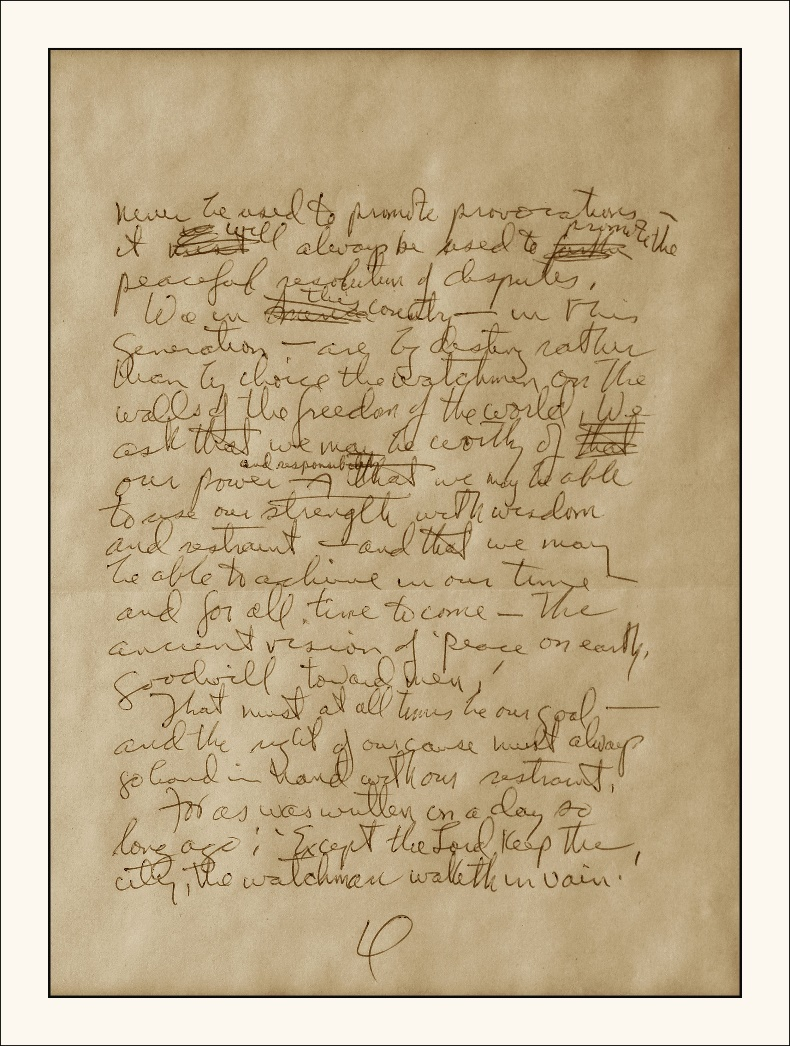 never be used to promote provocations —
it will always be used to promote the
peaceful resolution of disputes.
We in this country — in this
generation — are by destiny rather
than by choice the watchmen on the
walls of the freedom of the world. We
ask that we may be worthy of
and responsibility
our power — that we may be able
to use our strength with wisdom
and restraint — and that we may
be able to achieve in our time —
and for all time to come — the
ancient vision of 'peace on earth,
goodwill toward men.'
That must at all times be our goal —
and the right of our cause must always
go hand in hand with our restraint.
For as was written on a day so
long ago; 'Except the Lord keep the
city, the watchman waketh in vain.'